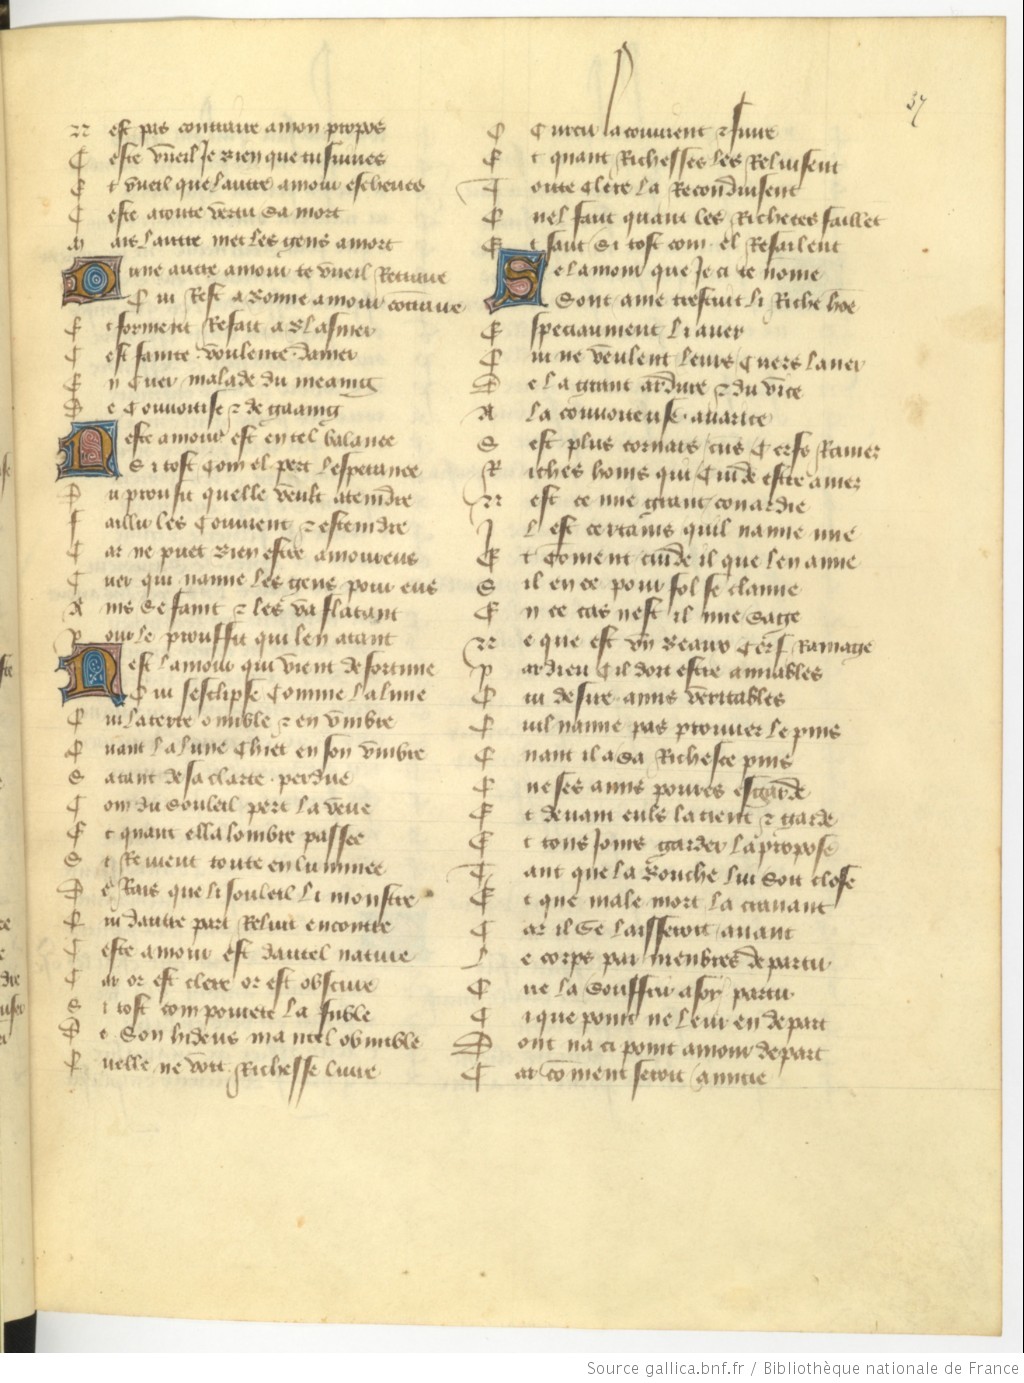 37
N est pas contraire a mon propos
C este vueil je bien que tu suives
E t vueil que lautre amour escheues
C este atoute vertu sa mort
M ais lautre met les gens a mort
D une autre amour te vueil retraire
Q ui rest a bonne amour cotraire
E t forment refait a blasmer
C est fainte voulente damer
E n cuer malade du meaing
D e couvoitise z de gaaing
C este amour est en tel balance
S i tost com el pert lesperance
D u proufit quelle veult atendre
F aillir les couvient z estaindre
C ar ne puet bien estre amoureus
C uer qui naime les gens pour eus
A ins se faint z les va flatant
P our le prouffit qui len atant
C est lamour qui vient de fortune
Q ui sesclipse comme la lune
Q ui la terre omble z enumbre
Q uant la lune chiet en son umbre
S atant de sa clarte perdue
C om du souleil pert la veue
E t quant ell a lombre passee
S i revient toute enluminee
D e rais que li souleil li monstre
Q ui dautre part reluit encontre
C este amour est dautel nature
C ar or est clere or est obscure
S i tost com povrete la fuble
D e son hideus mantel obnuble
Q uelle ne voit richesse luire
O curcir la couvient z fuire
E t quant richesses les reluisent
T oute clere la reconduisent
Q uel faut quant les richeces faillet
E t saut si tost com el resailent
D e lamour que je ci te nome
Sont ame trestuit li riche hoe
E speciaument li aver
Q ui ne veulent leurs cuers laver
D e la grant ardure z du vice
A la couvoiteuse avarice
S est plus cornars cus cerfs ramer
R iches homs qui cuide estre amer
N est ce mie grant conardie
I l est certains quil naime mie
E t coment cuide il que len aime
S il en ce pour fol se claime
E n ce cas nest il mie sage
N e que est un beaux cerfs ramage
P ardieu cil doit estre amiables
Q ui desire amis veritables
Q uil naime pas prouver le puis
Q uant il a sa richesce puis
Q ue ses amis povres esgarde
E t devant euls la tient z garde
E t tous jours garder la propose
T ant que la bouche lui soit close
E t que male mort la cravant
C ar il se laisseroit avant
L e corps par menbres departir
Q ue la souffrir a soy partir
S i que point ne leur en depart
D ont na ci point amour de part
C ar coment seroit amitie
Source gallica.bnf.fr / Bibliothèque nationale de France